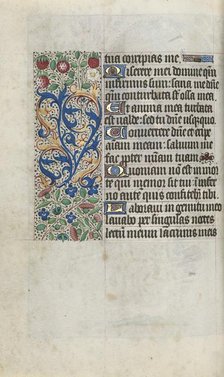 tua corripias me.
Miserere mei domine qm̄
infirmus sum: sana me dn̄e
qm̄ conturbata sūt ossa mea.
Et anima mea turbata
est valde: sed tu dn̄e usq̄quo
Convertere dn̄e et eripe
animam meam: salvum me
fac ꝓpter mīam tuam
Quoniam nō est in mor
te qui memor sit tui: in īfer
no autē quis confitebit̄ tibi.
Laboravi in gemitu meo
lavabo per singulas noctes
lectū meū lacrimis meis